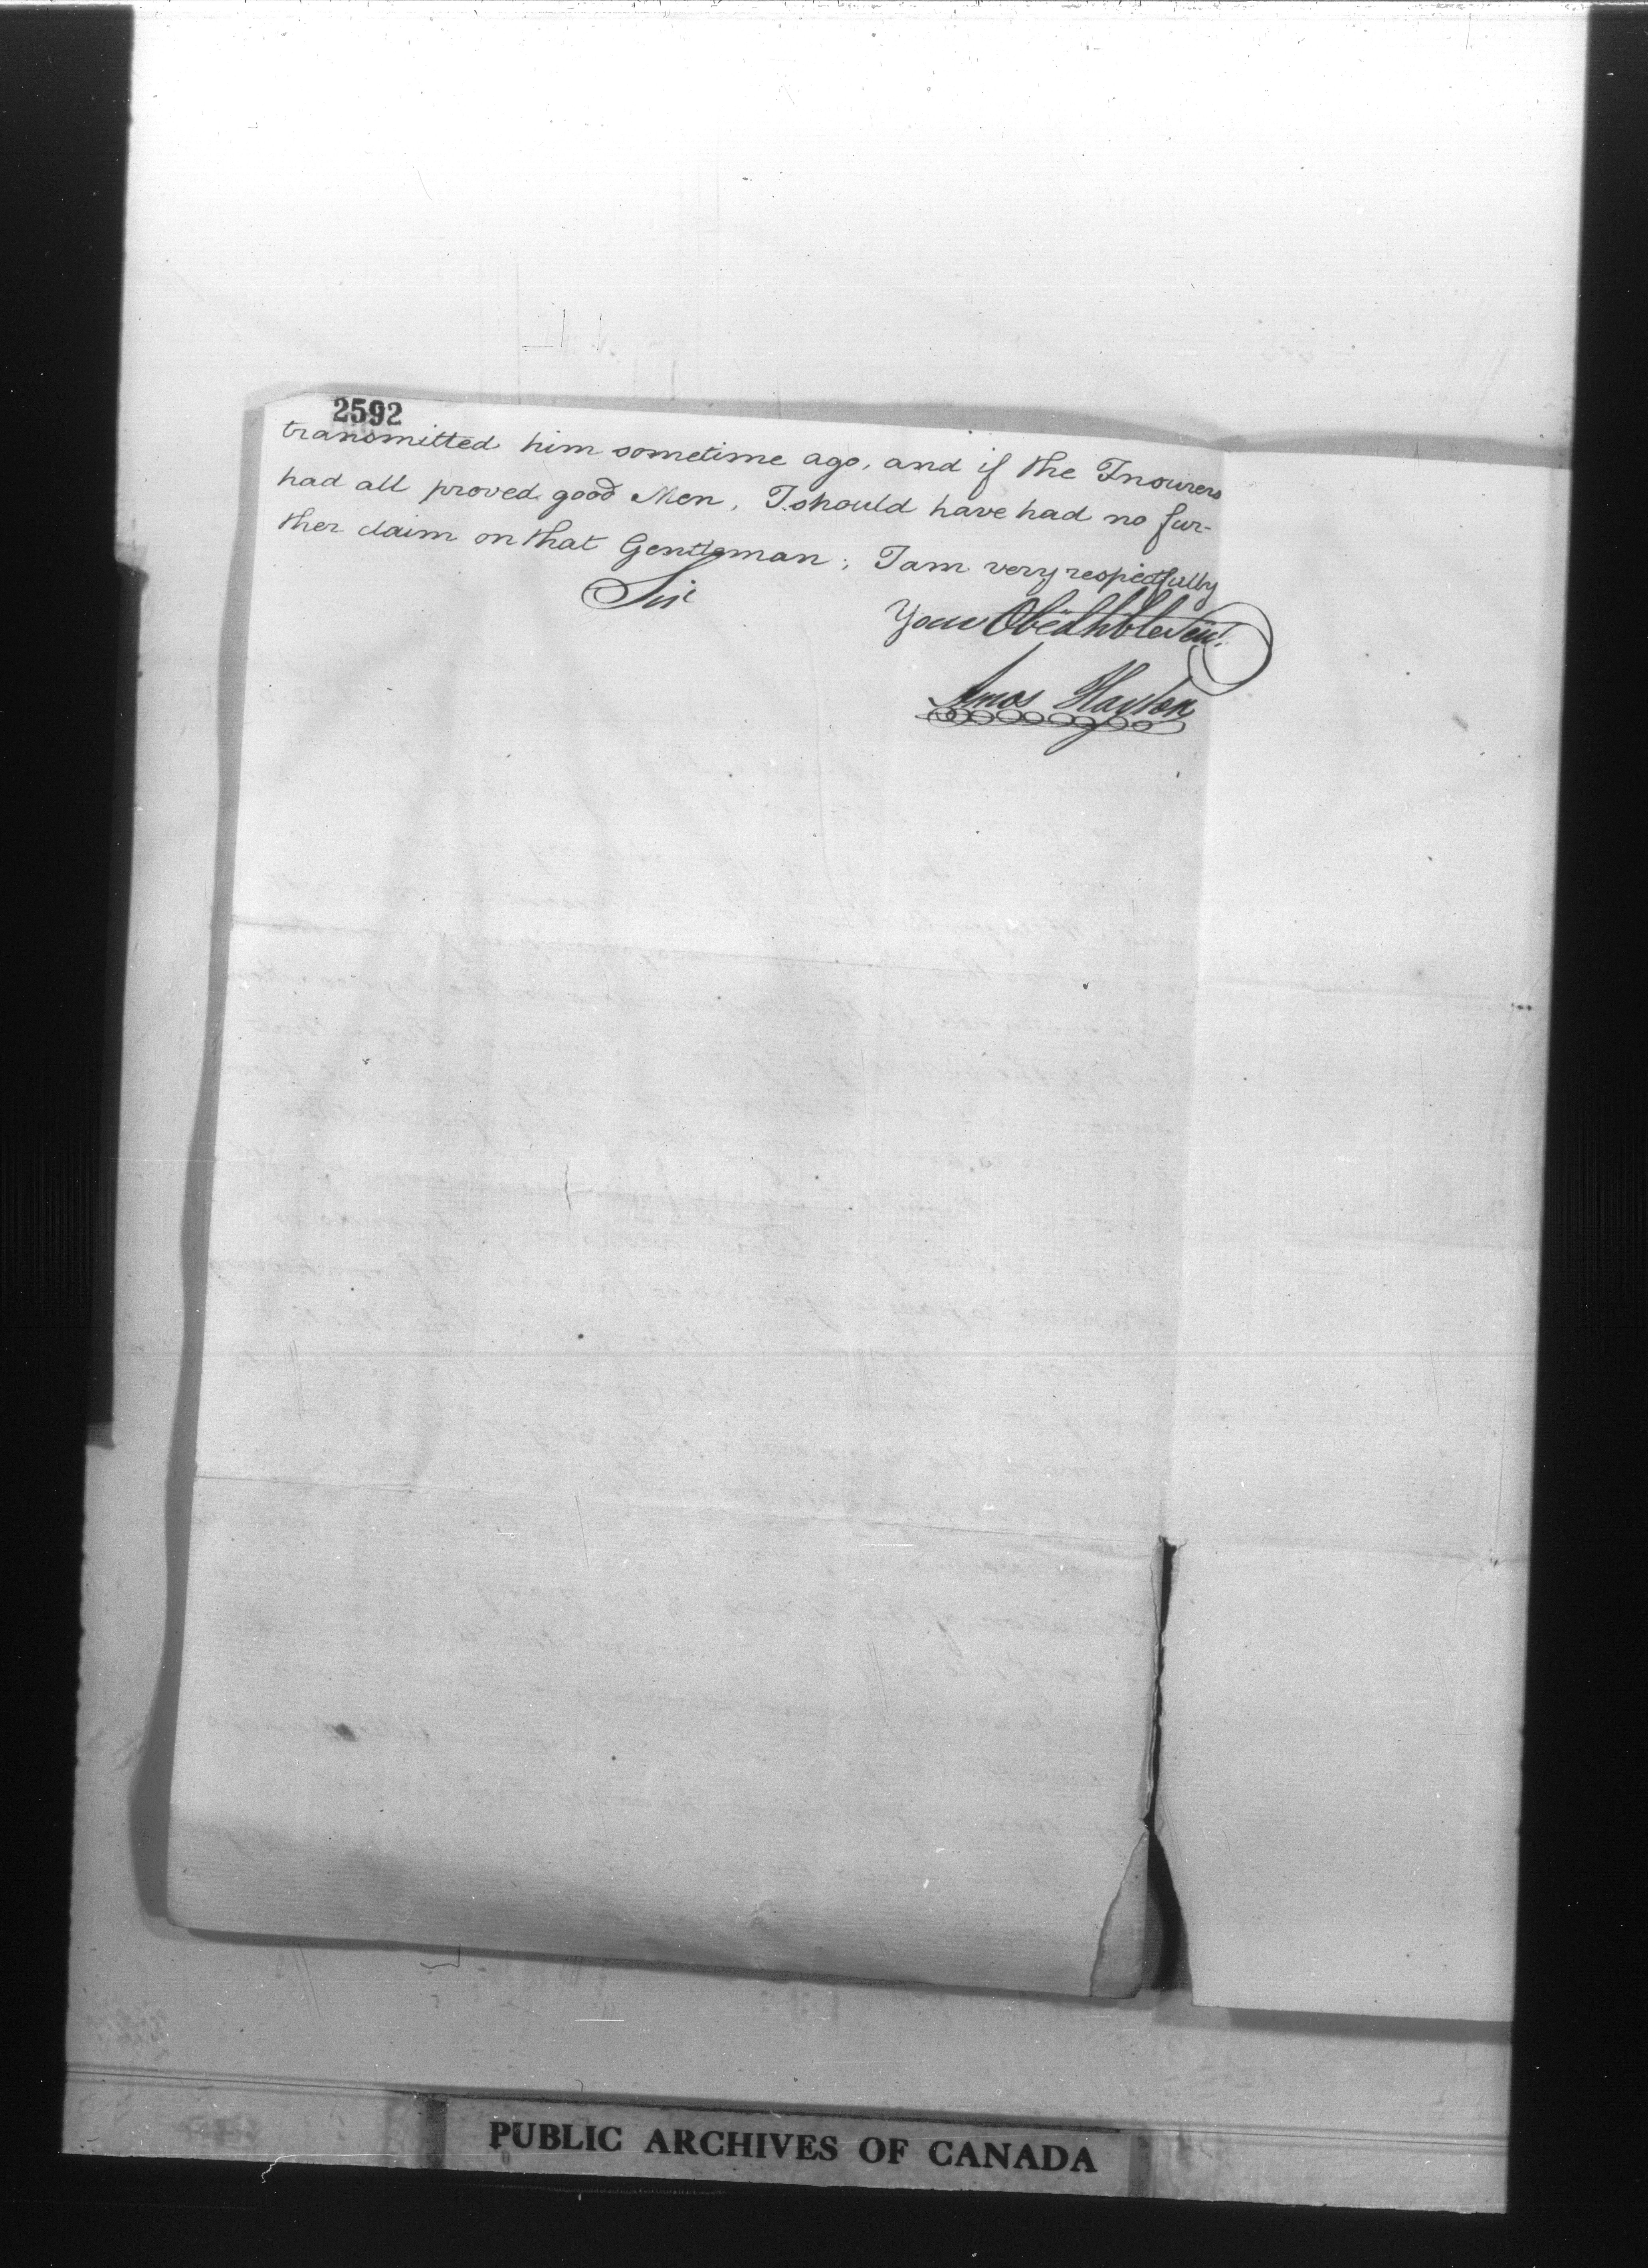 2592
transmitted him sometime ago, and if the Insurers
had all proved good Men, I should have had no fur-
ther claim on that Gentleman; I am very respectfully
Sir
Your Obedt hble Sert.
Amos Hayton
PUBLIC ARCHIVES OF CANADA